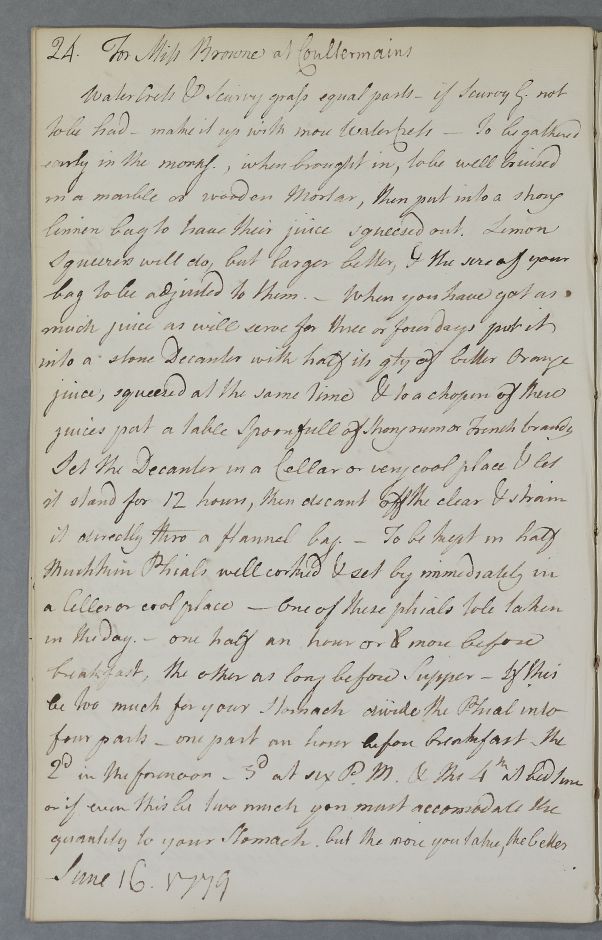 24. For Miss Browne at Coultermains
Water Cress & Scurvy grass equal parts - if Scurvy G. not
to be had - make it up with more Water Cress - To be gathered
early in the morng., when brought in, to be well bruised
in a marble or wooden Mortar, then put into a strong
linnen bag to have their juice squeesed out. Limon
Squeezers will do, but larger better, & the size of your
bag to be adjusted to them. - When you have got as
much juice as will serve for three or four days put it
into a stone Decanter with half its qty of bitter Orange
juice, squeesed at the same time & to a chopin of these
juices put a table Spoonfull of strong rum or French brandy
Set the Decanter in a Cellar or very cool place & let
it stand for 12 hours, then decant off the clear & strain
it directly thro a flannel bag. - To be kept in half
Mutchkin Phials well corked & set by immediately in
a Celler or cool place - One of these phials to be taken
in the day. - one half an hour or more before
breakfast, the other as long before Supper - If this
be two much for your Stomach divide the Phial into
four parts - one part an hour before breakfast - the
2d in the forenoon - 3d at six P.M. & the 4th at bed time
or if even this be two much you must accomodate the
quantity to your Stomach. but the more you take, the better
June 16. 1779